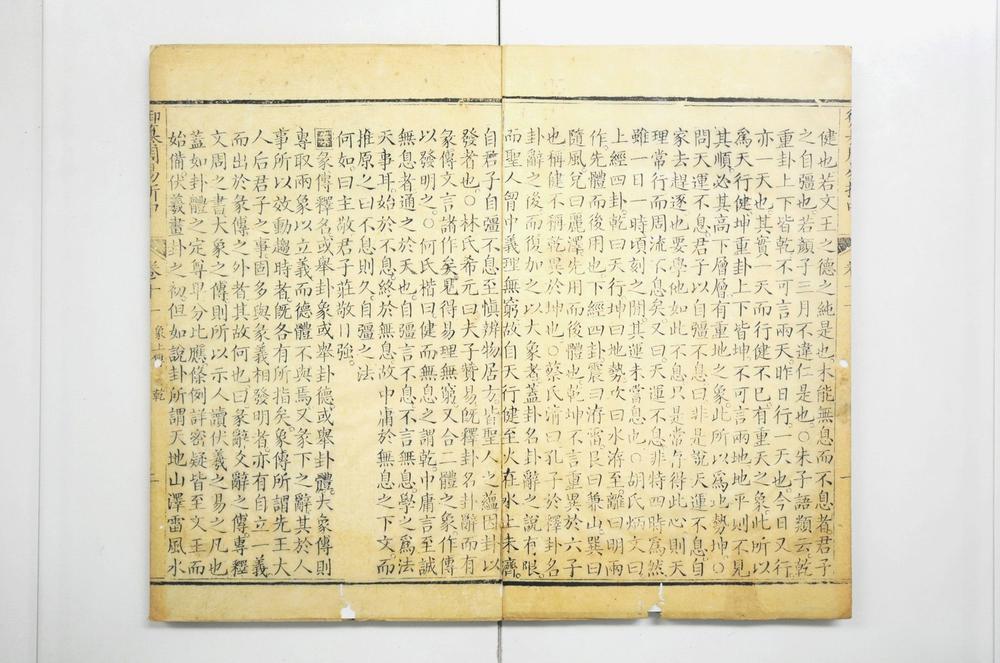 健也若文王之德之純是也未能無息而不息者君子
之自彊也若顏子三月不違仁是也○朱子語類云乾
重卦上下皆乾不可言兩天昨日行一天也今日又行
亦一天也其實一天而行健不已有重天之象此所以
爲天行健坤重卦上下皆坤不可言兩地地平則不見
其順必其高下層層有重地之象此所以爲地勢坤○
問天運不息君子以自彊不息曰非是說天運不息自
家去趕逐也要學他如此不息只是常存得此心則天
理常行而周流不息矣又曰天運不息非特四時爲然
雖一日一時頃刻之間其運未嘗息也○胡氏炳文曰
上經四卦乾曰天行坤曰地勢坎曰水洊至離曰明兩
作先體而後用也下經四卦震曰洊雷艮曰兼山巽曰
隨風兌曰麗澤先用而後體也乾坤不言重異於六子
也稱健不稱乾異於坤也○蔡氏淸曰孔子於釋卦名
卦辭之後而復加之以大象者蓋卦名卦辭之說有限
而聖人胷中義理無窮故自天行健至火在水上未濟
自君子自彊不息至愼辨物居方皆聖人之蘊因卦以
發者也○林氏希元曰夫子贊易旣釋卦名卦辭而有
彖傳文言諸作矣見得易理無窮又合二體之象作傳
以發明之○何氏楷曰健而無息之謂乾中庸言至誠
無息者通之於天也自彊言不息不言無息學之爲法
天事耳始於不息終於無息故中庸於無息之下文而
推原之曰不息則久自彊之法
何如曰主敬君子莊敬日強
案彖傳釋名或舉卦象或舉卦德或舉卦體大象傳則
專取兩象以立義而德體不與焉又彖下之辭其於人
事所以效動趨時者旣各有所指矣象傳所謂先王大
人后君子之事固多與彖義相發明者亦有自立一義
而出於彖傳之外者其故何也曰彖辭爻辭之傳專釋
文周之書大象之傳則所以示人讀伏羲之易之凡也
蓋如卦體之定尊卑分比應條例詳密疑皆至文王而
始備伏羲畫卦之初但如說卦所謂天地山澤雷風水
御纂周易折中 卷十一 象上傳 乾 二